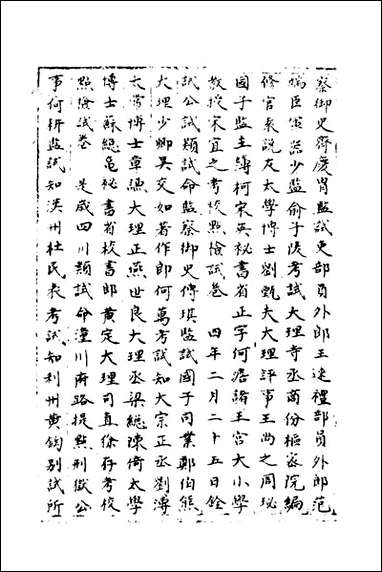 察御史齊慶胄監試吏部員外郎王逨禮部員外郎范
端臣軍器少監俞子陵考試大理寺丞商份樞密院編
修官袁說友太學博士劉甄夫大理評事王尚之同秘
國子監主簿柯宋英秘書省正字何澹諸王宮大小學
教授宋宜之考校點檢試卷　四年二月二十五日銓
試公試類試命監察御史傅琪監試國子司業鄭伯熊
大理少卿吳交如著作郎何萬考試知大宗正丞劉溥
太常博士章謙大理正燕世良大理丞梁總陳倚太學
博士蘇總龜秘書省校書郎黃定大理司直徐存考校
點檢試卷　是歲四川類試命潼川府路提點刑獄公
事何耕監試知漢州杜民表考試知利州黃鈞別試所